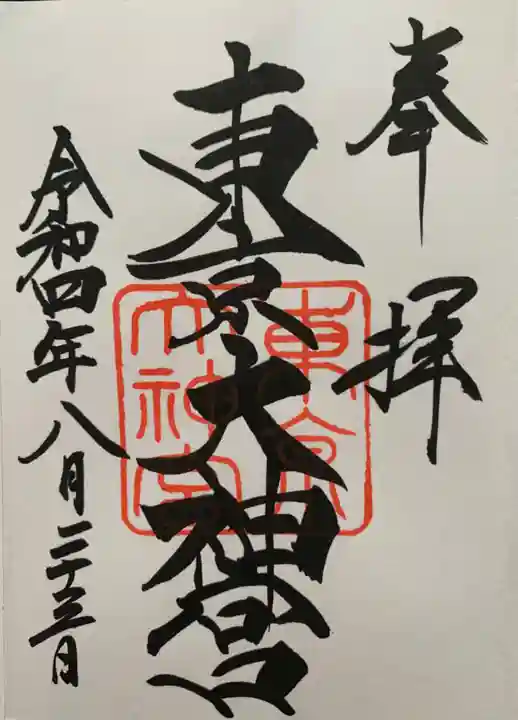 奉拝
東京大神宮
東京大神宮
令和四年八月二十三日